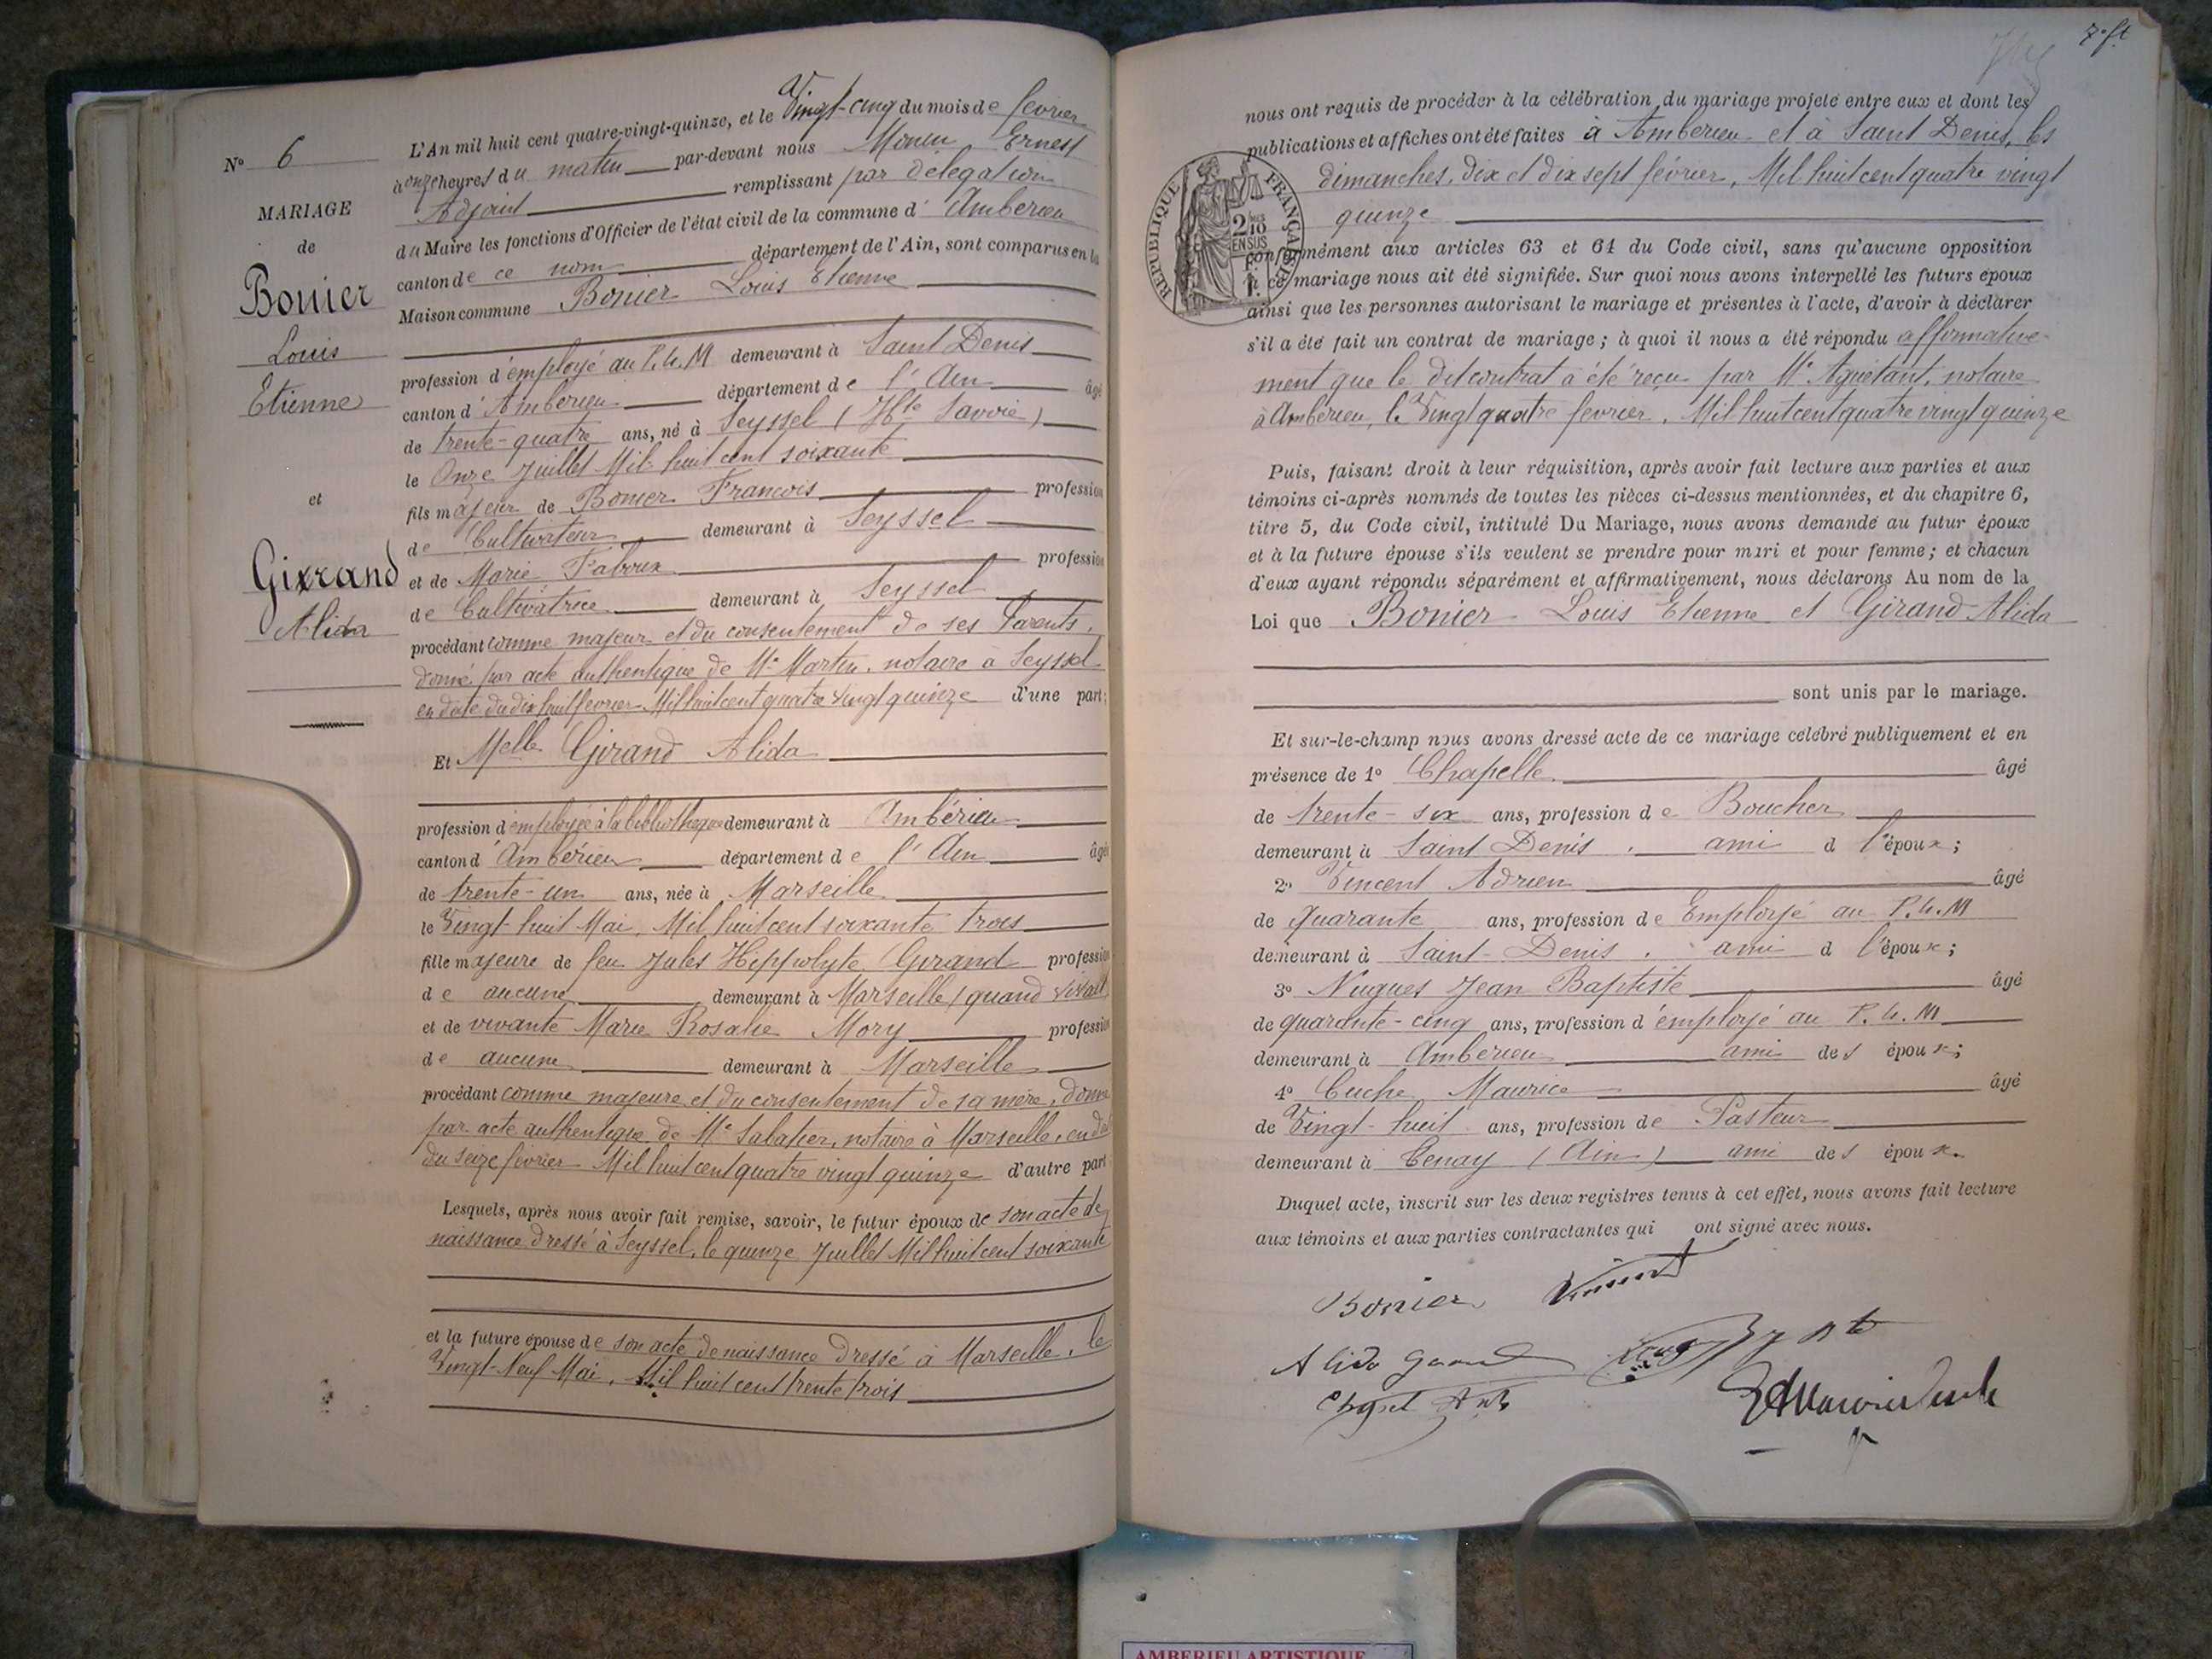 N° 6
MARIAGE
de
Bonier
Louis
Etienne
et
Girrand
Alida
L'An mil huit cent quatre-vingt-quinze, et le Vingt-cinq du mois de fevrier
à onze heures du matin par-devant nous Ernest
Adjoint remplissant par délégation
du Maire les fonctions d'Officier de l'état civil de la commune d' Ambérieu
canton de ce nom département de l'Ain, sont comparus en la
Maison commune Bonier Louis Etienne
profession d'employé au P.L.M demeurant à Saint Denis
canton d'Ambérieu département de l'Ain âgé
de trente-quatre ans, né à Seyssel (Hte Savoie)
le Onze Juillet Mil huit cent soixante
fils majeur de Bonier François profession
de Cultivateur demeurant à Seyssel
et de Marie Faboux profession
de Cultivatrice demeurant à Seyssel
procédant comme majeur et du consentement de ses Parents,
donné par acte authentique de Me Martin, notaire à Seyssel
en date du dix huit fevrier Mil huit cent quatre vingt quinze d'une part;
Et Melle Girand Alida
profession d'employée à la bibliothèque demeurant à Ambérieu
canton d'Ambérieu département de l'Ain âgée
de trente-un ans, née à Marseille
le Vingt-huit Mai, Mil huit cent soixante trois
fille majeure de feu Jules Hippolyte Girand profession
de aucune demeurant à Marseille (quand vivait
et de vivante Marie Rosalie Mory profession
de aucune demeurant à Marseille
procédant comme majeure et du consentement de sa mère, donné
par acte authentique de Me Sabatier, notaire à Marseille, en dat
du seize fevrier Mil huit cent quatre vingt quinze d'autre part
Lesquels, après nous avoir fait remise, savoir, le futur époux de son acte de
naissance dressé à Seyssel, le quinze Juillet Mil huit cent soixante
et la future épouse de son acte de naissance dressé à Marseille, le
Vingt-Neuf Mai, Mil huit cent trente trois
nous ont requis de procéder à la célébration du mariage projeté entre eux et dont les
publications et affiches ont été faites à Ambérieu et à Saint Denis, les
dimanches, dix et dix sept février, Mil huit cent quatre vingt
quinze
REPUBLIQUE FRANÇAISE
2/10 EN SUS
conformément aux articles 63 et 64 du Code civil, sans qu'aucune opposition
à ce mariage nous ait été signifiée. Sur quoi nous avons interpellé les futurs époux
ainsi que les personnes autorisant le mariage et présentes à l'acte, d'avoir à déclarer
s'il a été fait un contrat de mariage; à quoi il nous a été répondu affirmative-
ment que le dit contrat a été reçu par Me Aguétant, notaire
à Ambérieu, le Vingt quatre fevrier, Mil huit cent quatre vingt quinze
Puis, faisant droit à leur réquisition, après avoir fait lecture aux parties et aux
témoins ci-après nommés de toutes les pièces ci-dessus mentionnées, et du chapitre 6,
titre 5, du Code civil, intitulé Du Mariage, nous avons demandé au futur époux
et à la future épouse s'ils veulent se prendre pour mari et pour femme; et chacun
d'eux ayant répondu séparément et affirmativement, nous déclarons Au nom de la
Loi que Bonier Louis Etienne et Girand Alida
sont unis par le mariage.
Et sur-le-champ nous avons dressé acte de ce mariage célébré publiquement et en
présence de 1° Chapelle âgé
de trente-six ans, profession de Boucher
demeurant à Saint Denis, ami d l'époux;
2° Vincent Adrien âgé
de quarante ans, profession de Employé au P.L.M
demeurant à Saint-Denis, ami d l'époux;
3° Nugues Jean Baptiste âgé
de quarante-cinq ans, profession d'employé au P.L.M
demeurant à Ambérieu ami des époux;
4° Cuche Maurice âgé
de Vingt-huit ans, profession de Pasteur
demeurant à Tenay (Ain) ami des époux.
Duquel acte, inscrit sur les deux registres tenus à cet effet, nous avons fait lecture
aux témoins et aux parties contractantes qui ont signé avec nous.
Bonier Vincent
Alida
AMBERIEU ARTISTIQUE